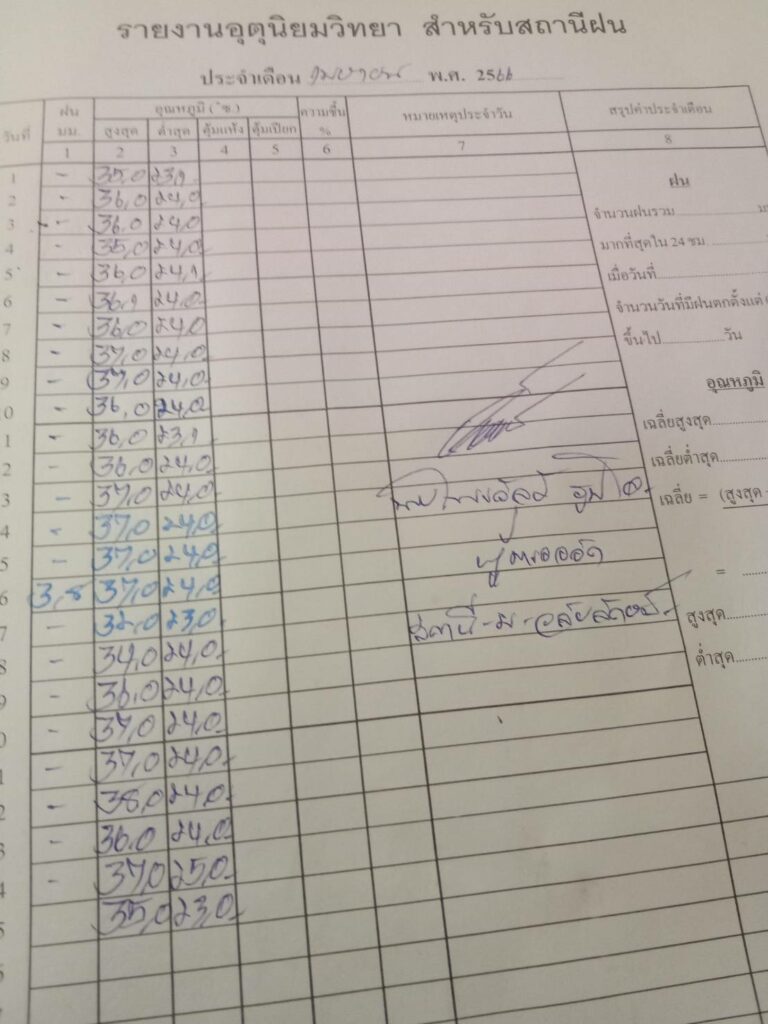 รายงานอุตุนิยมวิทยา สำหรับสถานีฝน
ประจำเดือน เมษายน พ.ศ. 2566
วันที่ ฝน มม. อุณหภูมิ (°ซ.) ความชื้น % หมายเหตุประจำวัน สรุปค่าประจำเดือน
สูงสุด ต่ำสุด ตุ้มแห้ง ตุ้มเปียก
1 2 3 4 5 6 7 8
1 - 35,0 23,9
2 - 36,0 24,0
3 - 36,0 24,0
4 - 35,0 24,0
5 - 36,0 24,9
6 - 36,9 24,0
7 - 36,0 24,0
8 - 37,0 24,0
9 - 37,0 24,0
0 - 36,0 24,0
1 - 36,0 23,9
2 - 36,0 24,0
3 - 37,0 24,0
4 - 37,0 24,0
5 - 37,0 24,0
6 3,8 37,0 24,0
7 - 32,0 23,0
8 - 34,0 24,0
9 - 36,0 24,0
0 - 37,0 24,0
1 - 37,0 24,0
2 - 38,0 24,0
3 - 36,0 24,0
4 - 37,0 25,0
5 35,0 23,0
สถานี-ม.วลัยลักษณ์
ฝน
จำนวนฝนรวม
มากที่สุดใน 24 ชม
เมื่อวันที่
จำนวนวันที่มีฝนตกตั้งแต่
ขึ้นไป วัน
อุณหภูมิ
เฉลี่ยสูงสุด
เฉลี่ยต่ำสุด
เฉลี่ย = (สูงสุด
=
สูงสุด
ต่ำสุด